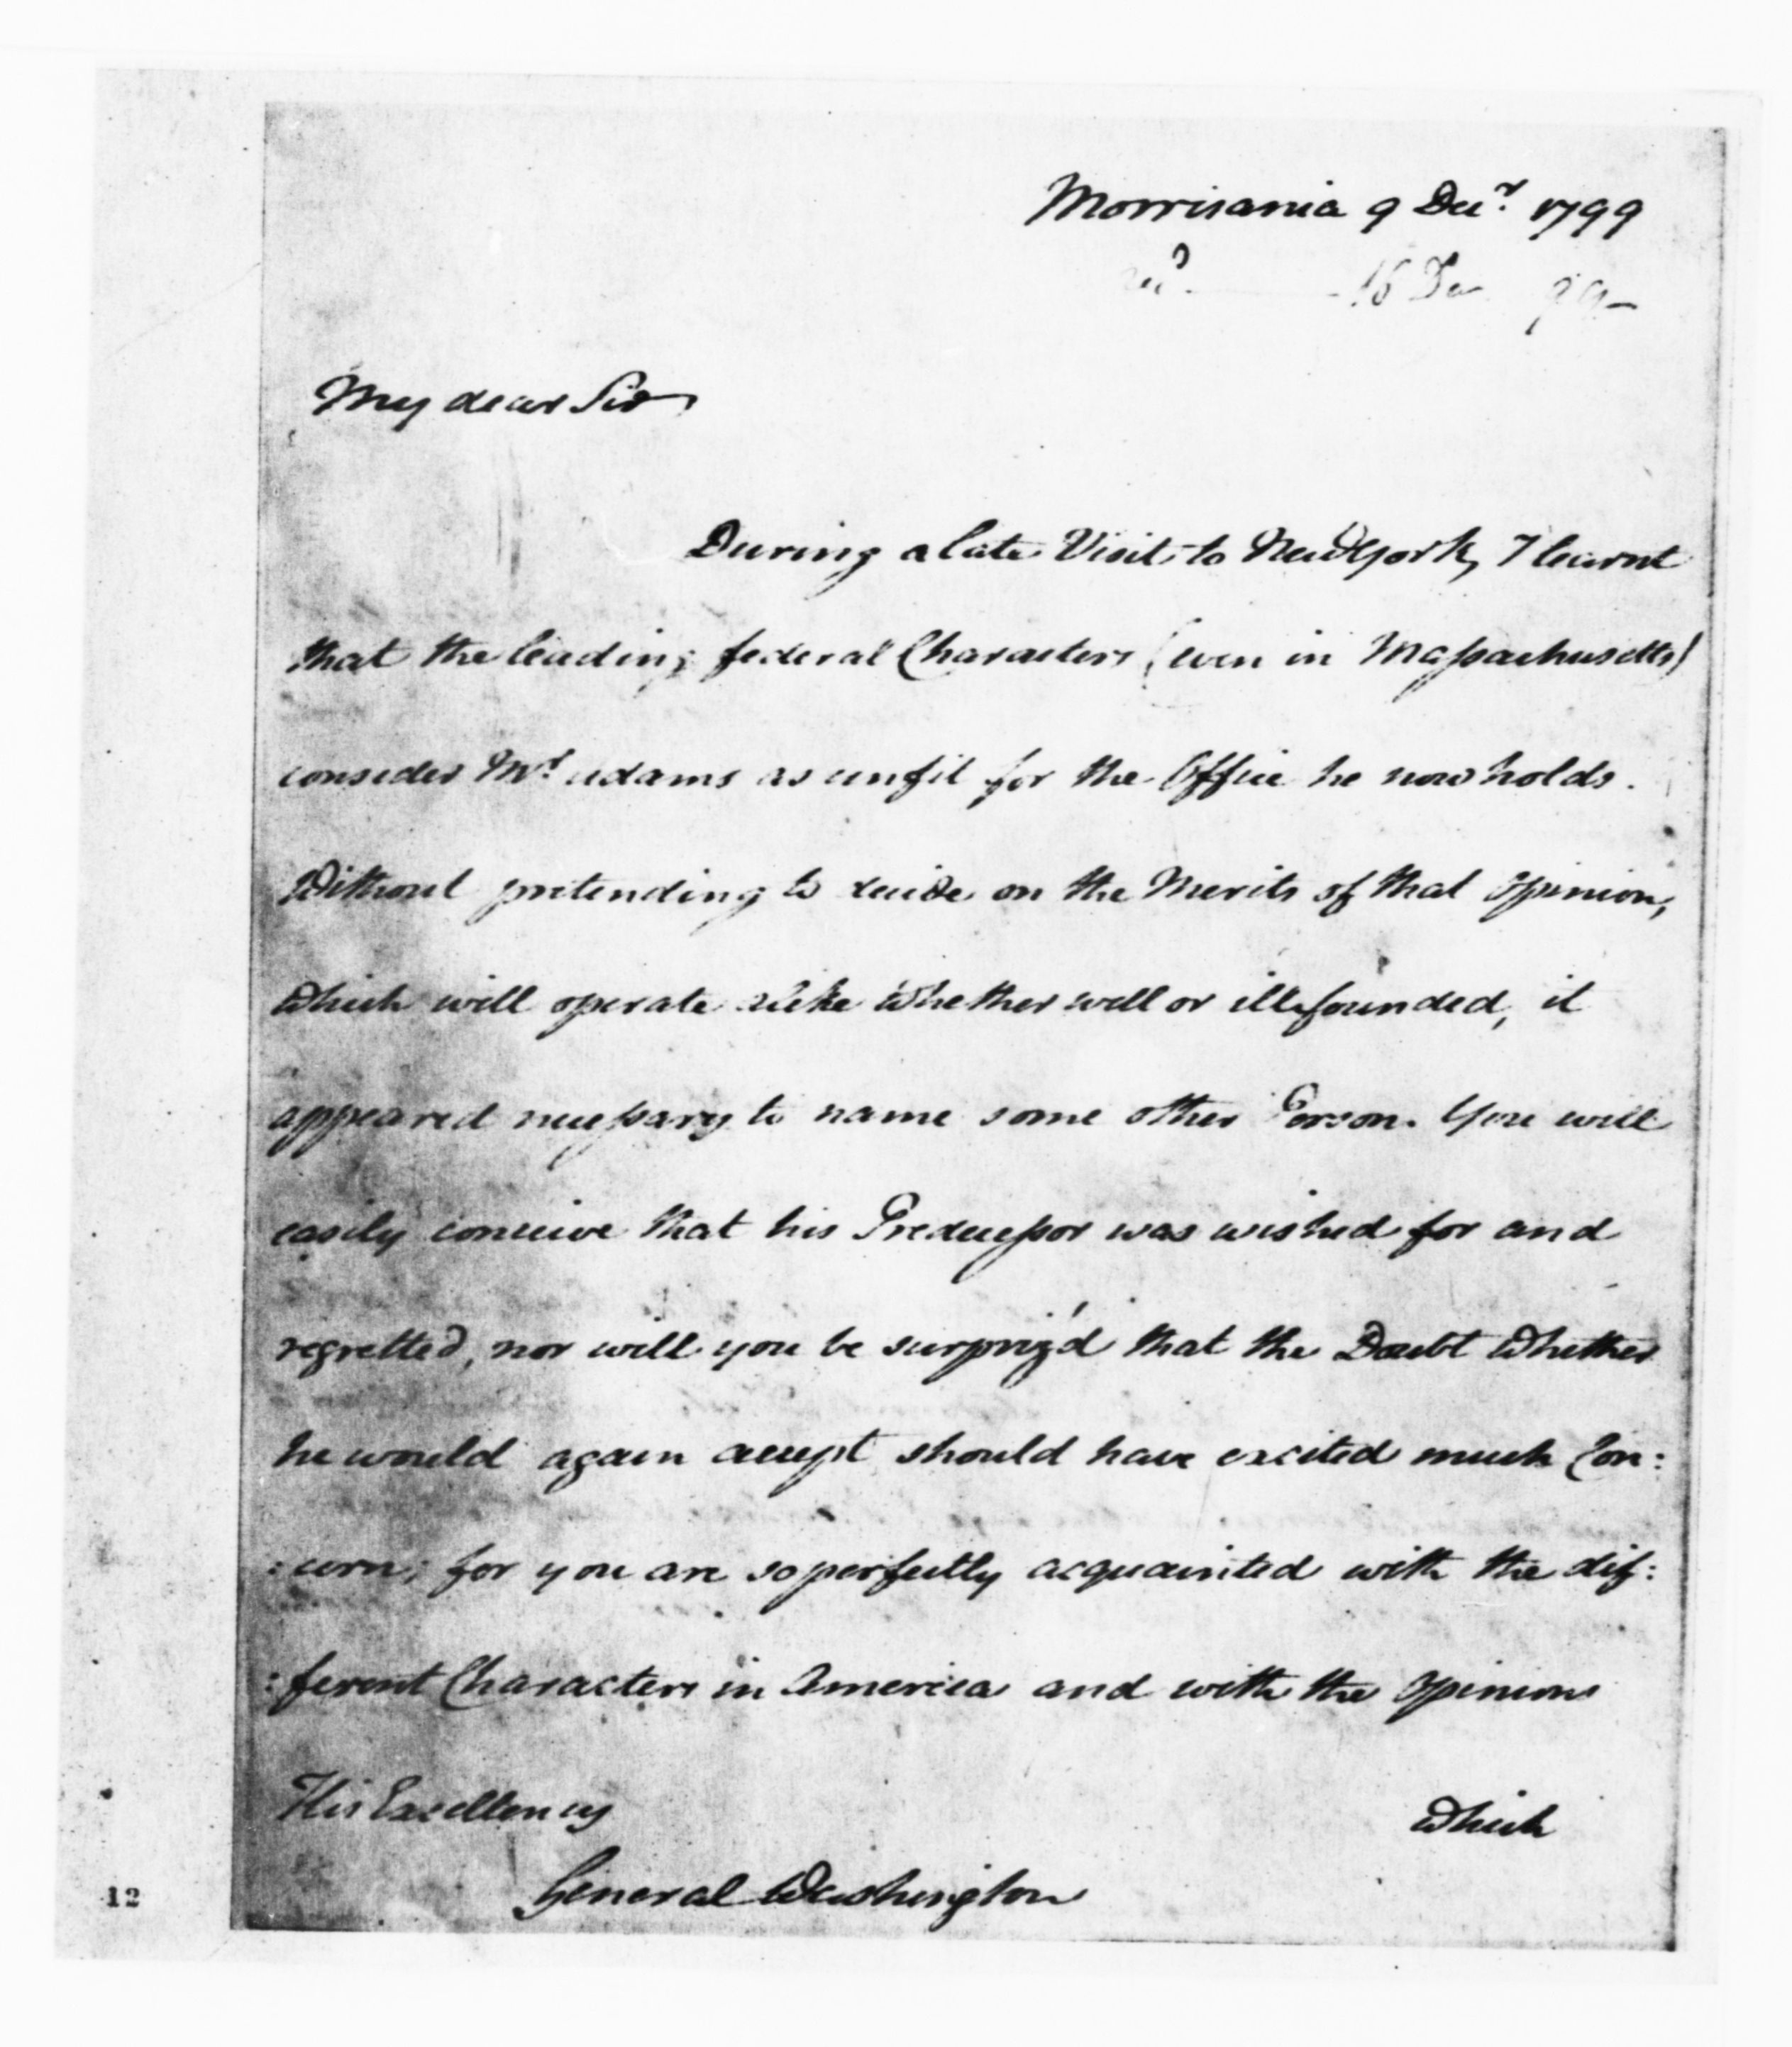 Morrisania 9 Decr. 1799
recd. 16 Dec 99
My dear Sir
During a late Visit to New York, I learnt
that the leading federal Characters (even in Massachusetts)
consider Mr. Adams as unfit for the Office he now holds.
Without pretending to decide on the Merits of that Opinion,
which will operate alike whether well or ill founded, it
appeared necessary to name some other Person. You will
easily conceive that his Predecessor was wished for and
regretted, nor will you be surpriz'd that the Doubt whether
he would again accept should have excited much Con:
:cern; for you are so perfectly acquainted with the dif:
:ferent Characters in America and with the Opinions
His Excellency
which
General Washington
12